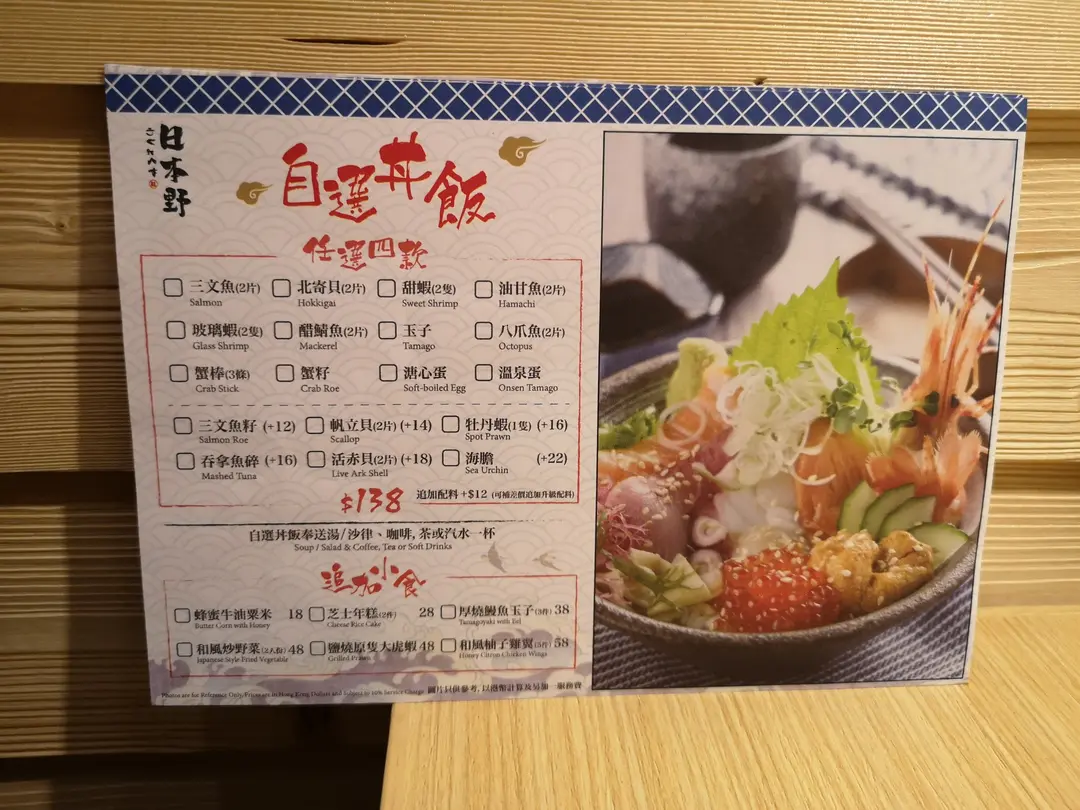 日本野
自選丼飯
任選四款
三文魚(2片) 北寄貝(2片) 甜蝦(2隻) 油甘魚(2片)
Salmon Hokkigai Sweet Shrimp Hamachi
玻璃蝦(2隻) 醋鯖魚(2片) 玉子 八爪魚(2片)
Glass Shrimp Mackerel Tamago Octopus
蟹棒(3條) 蟹籽 溏心蛋 溫泉蛋
Crab Stick Crab Roe Soft-boiled Egg Onsen Tamago
三文魚籽 (+12) 帆立貝(2片) (+14) 牡丹蝦(1隻) (+16)
Salmon Roe Scallop Spot Prawn
吞拿魚碎 (+16) 活赤貝(2片) (+18) 海膽 (+22)
Mashed Tuna Live Ark Shell Sea Urchin
$138 追加配料+$12 (可補差價追加升級配料)
自選丼飯奉送湯/沙律、咖啡, 茶或汽水一杯
Soup / Salad & Coffee, Tea or Soft Drinks
追加小食
蜂蜜牛油粟米 18 芝士年糕(2件) 28 厚燒鰻魚玉子(3件) 38
Butter Corn with Honey Cheese Rice Cake Tamagoyaki with Eel
和風炒野菜(2人份) 48 鹽燒原隻大虎蝦 48 和風柚子雞翼(5件) 58
Japanese Style Fried Vegetable Grilled Prawn Honey Citron Chicken Wings
Photos are for Reference Only, Prices are in Hong Kong Dollars and Subject to 10% Service Charge 圖片只供參考, 以港幣計算及另加一服務費